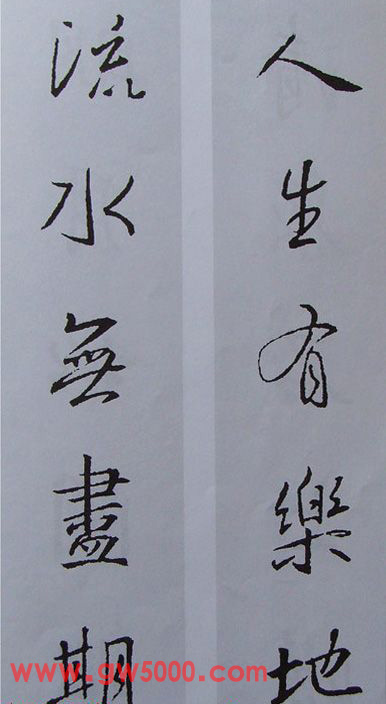 人生有樂地
流水無盡期
www.gw5000.com